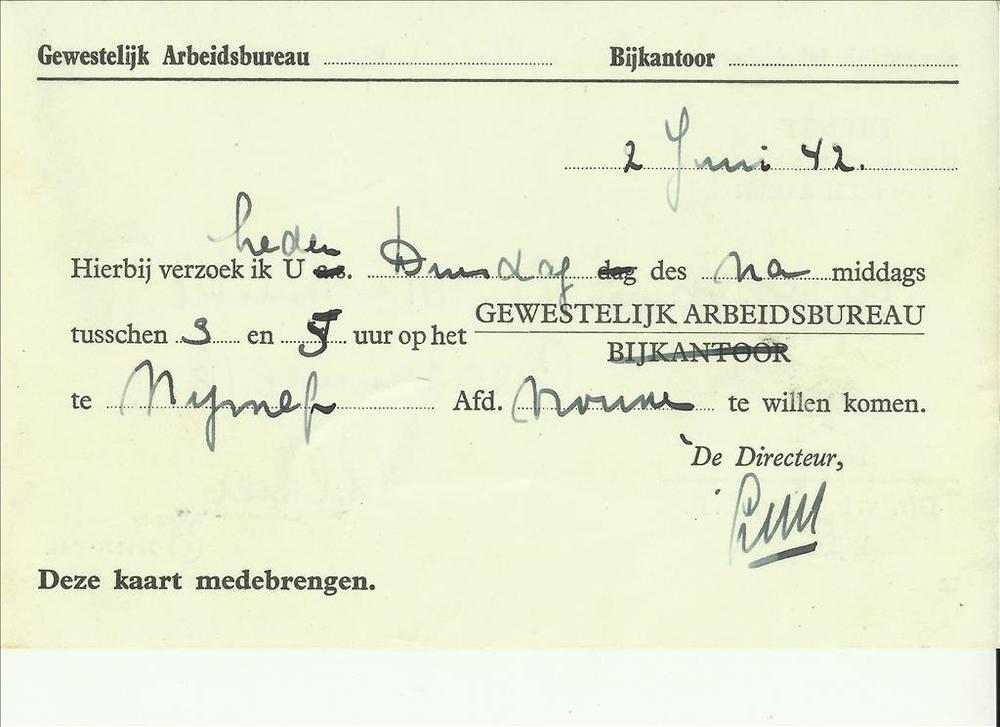 Gewestelijk Arbeidsbureau Bijkantoor
2 Juni 42.
heden
Hierbij verzoek ik U a.s. Dinsdag dag des na middags
tusschen 3 en 5 uur op het GEWESTELIJK ARBEIDSBUREAU
BIJKANTOOR
te Afd. te willen komen.
De Directeur,
Deze kaart medebrengen.